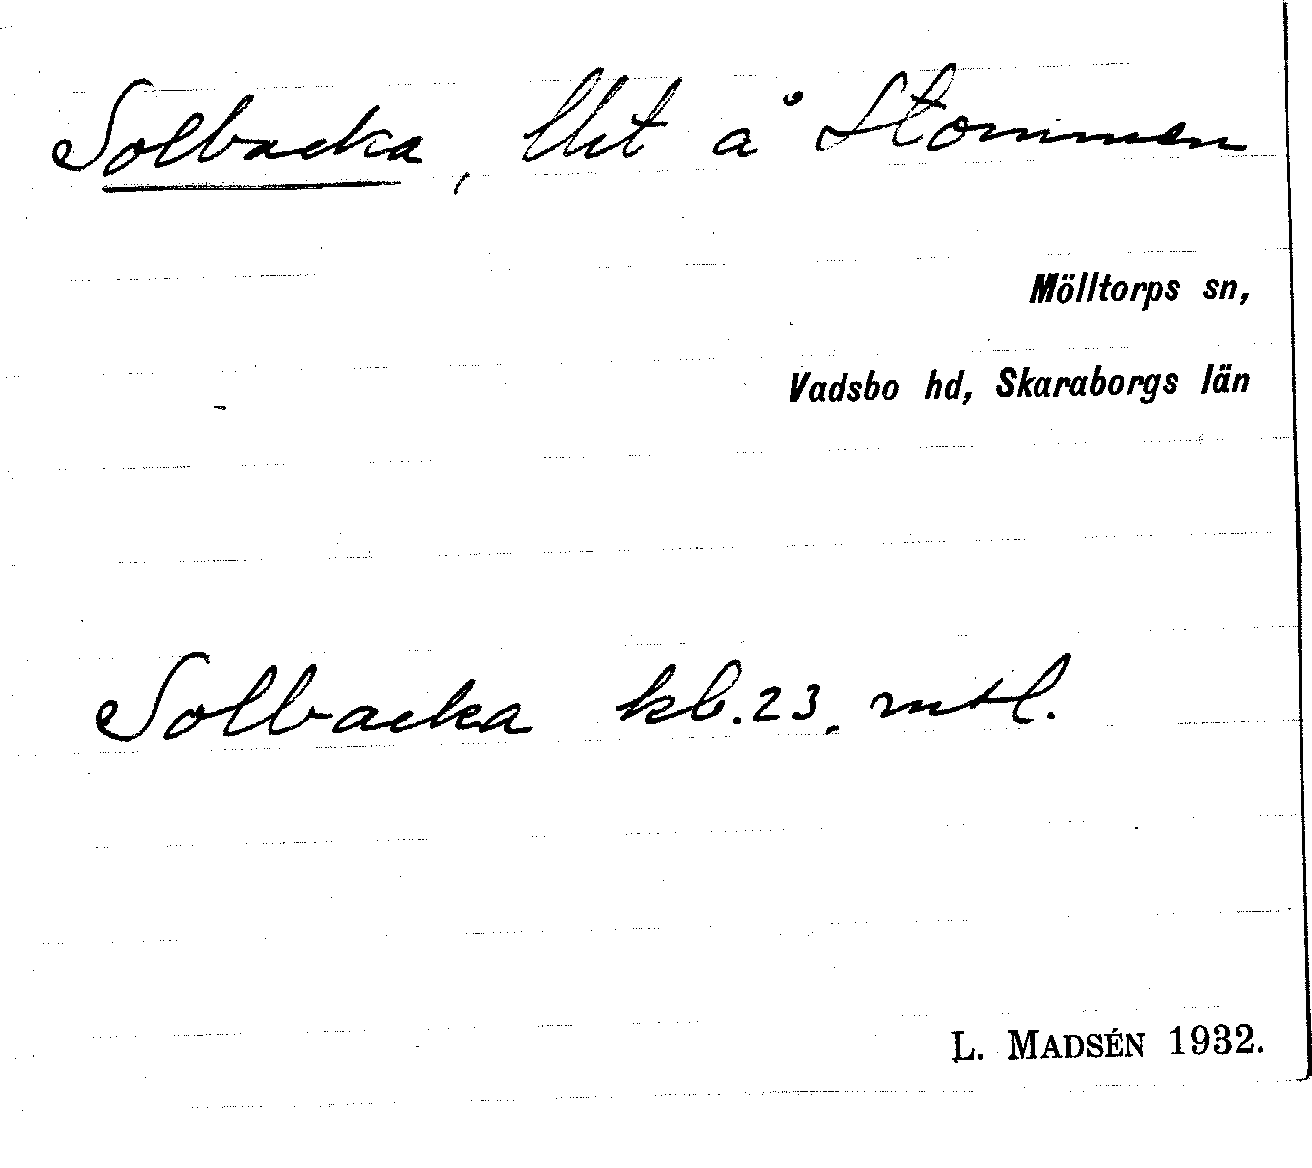 Solbacka, lht å Stommen
Mölltorps sn,
Vadsbo hd, Skaraborgs län
Solbacka kb. 23. mtl.
L. MADSÉN 1932.